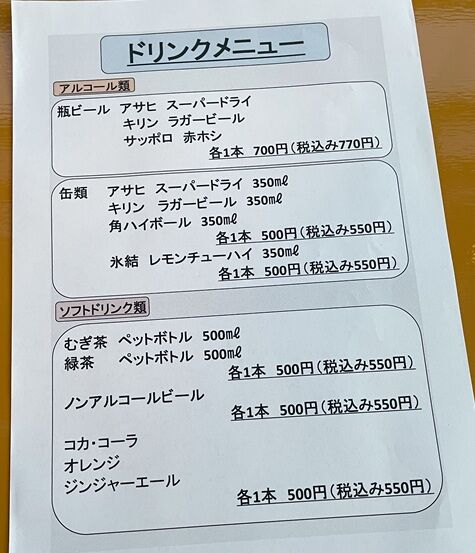 ドリンクメニュー
アルコール類
瓶ビール アサヒ スーパードライ
キリン ラガービール
サッポロ 赤ホシ
各1本 700円(税込み770円)
缶類 アサヒ スーパードライ 350㎖
キリン ラガービール 350㎖
角ハイボール 350㎖
各1本 500円(税込み550円)
氷結 レモンチューハイ 350㎖
各1本 500円(税込み550円)
ソフトドリンク類
むぎ茶 ペットボトル 500㎖
緑茶 ペットボトル 500㎖
各1本 500円(税込み550円)
ノンアルコールビール
各1本 500円(税込み550円)
コカ・コーラ
オレンジ
ジンジャーエール
各1本 500円(税込み550円)